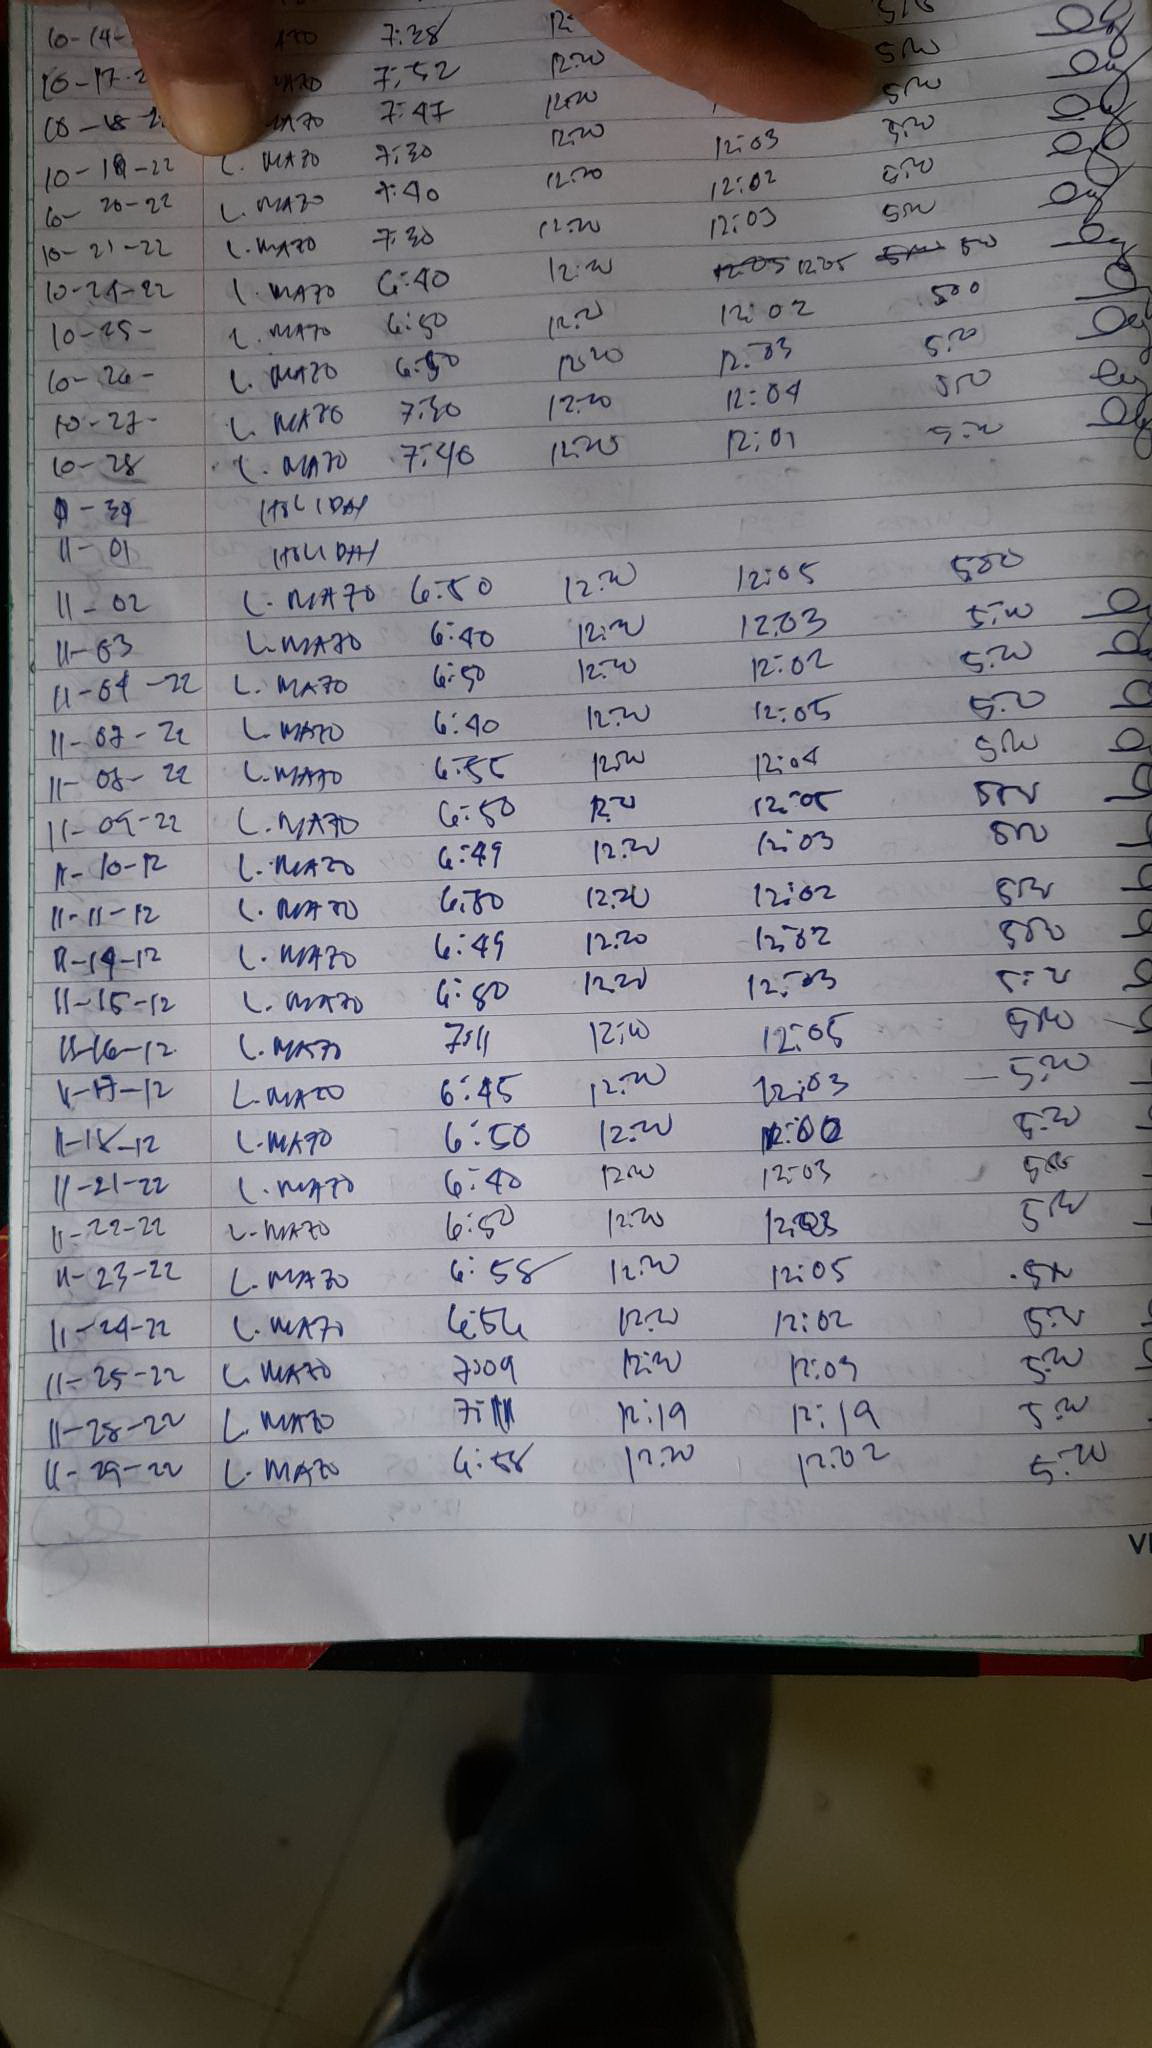 10-14- 7:28 12:
10-17-2 7:52 12:20 5:20
10-18-2 7:47 12:20 5:20
10-19-22 L. MAZO 7:30 12:20 12:03 5:20
20-22 L. MAZO 7:40 12:20 12:02 5:20
10-21-22 L. MAZO 7:30 12:20 12:03 5:20
10-24-22 L. MAZO 6:40 12:20 12:05 12:05
10-25- L. MAZO 6:50 12:20 12:02 500
10-26- L. MAZO 12:20 12:03 5:20
10-27- L. MAZO 7:30 12:20 12:04 5:20
10-28 L. MAZO 7:40 12:20 12:01 5:20
HOLIDAY
11-01 HOLIDAY
11-02 L. MAZO 6:50 12:20 12:05 500
11-03 L. MAZO 6:40 12:20 12:03 5:20
11-04-22 L. MAZO 6:50 12:20 12:02 5:20
11-07-22 L. MAZO 6:40 12:20 12:05 5:20
11-08-22 L. MAZO 6:55 12:20 12:04 5:20
11-09-22 L. MAZO 6:50 12:20 12:05 5:20
11-10-12 L. MAZO 6:49 12:20 12:03 5:20
11-11-12 L. MAZO 6:50 12:20 12:02 5:20
11-14-12 L. MAZO 6:49 12:20 12:02 5:20
11-15-12 L. MAZO 6:50 12:20 12:03 5:20
11-16-12 L. MAZO 7:11 12:20 12:05 5:20
11-17-12 L. MAZO 6:45 12:20 12:03 - 5:20
11-18-12 L. MAZO 6:50 12:20 12:00 5:20
11-21-22 L. MAZO 6:40 12:20 12:03
11-22-22 L. MAZO 6:50 12:20 12:03 5:20
11-23-22 L. MAZO 6:58 12:20 12:05 5:20
11-24-22 L. MAZO 6:54 12:20 12:02 5:20
11-25-22 L. MAZO 7:09 12:20 12:09 5:20
11-28-22 L. MAZO 7:11 12:19 12:19 5:20
11-29-22 L. MAZO 6:58 12:20 12:02 5:20
VI